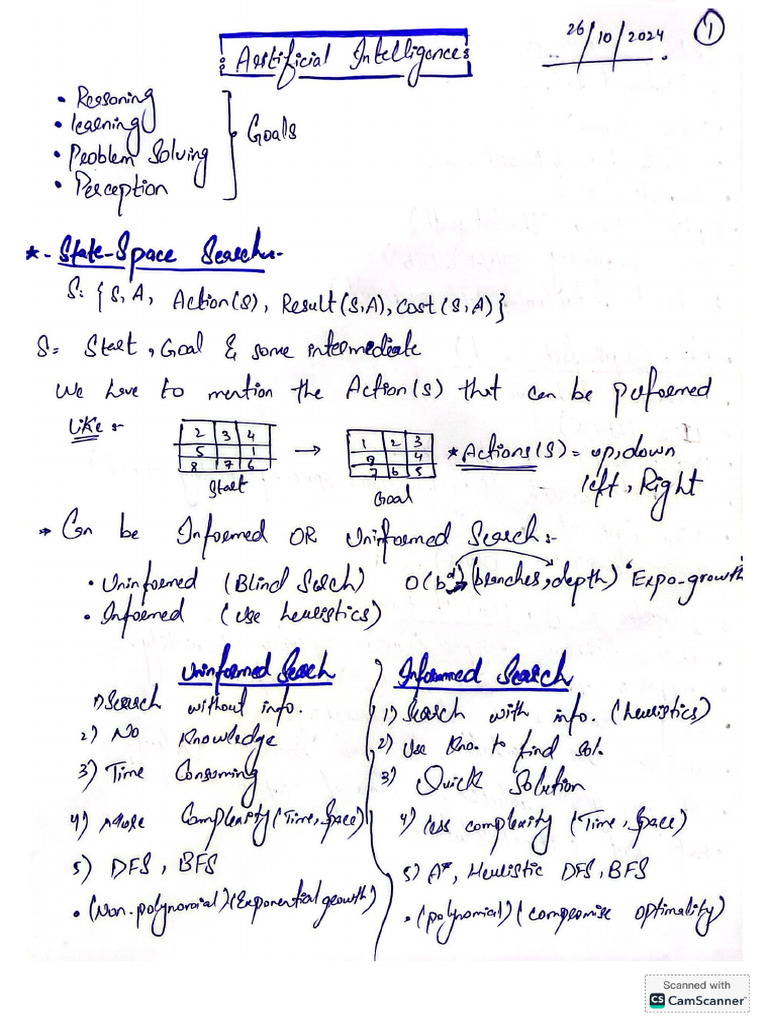 26/10/2024 1
: Artificial Intelligence :
• Reasoning
• learning
• Problem Solving
• Perception
Goals
* - State-Space Search:-
S: {S, A, Action(S), Result(S,A), Cost(S,A)}
S= Start, Goal & some intermediate
We have to mention the Action(s) that can be performed
Like :-
2 3 4
5 1
8 7 6
Start
→
1 2 3
8 4
7 6 5
Goal
* Actions(S) = up, down
left, Right
→ Can be Informed OR Uninformed Search:-
• Uninformed (Blind Search) O(b^d) (branches, depth) "Expo-growth
• Informed (use heuristics)
Uninformed Search
1) Search without info.
2) No Knowledge
3) Time Consuming
4) More Complexity (Time, Space)
5) DFS, BFS
• (Non-polynomial) (Exponential growth)
Informed Search
1) Search with info. (heuristics)
2) Use Kno. to find sol.
3) Quick Solution
4) less complexity (Time, Space)
5) A*, Heuristic DFS, BFS
• (polynomial) (compromise optimality)
Scanned with
CS CamScanner